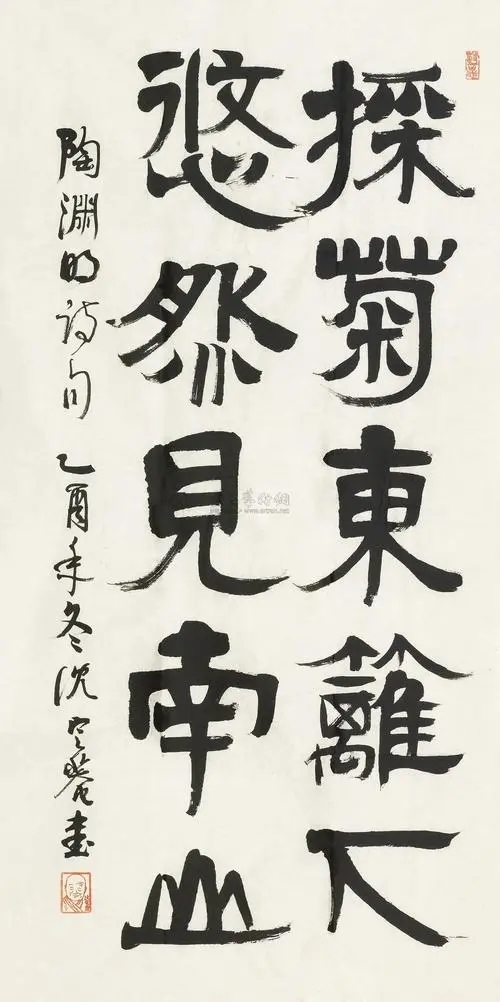 採菊東籬下
悠然見南山
陶淵明詩句 乙酉年冬沈定菴書